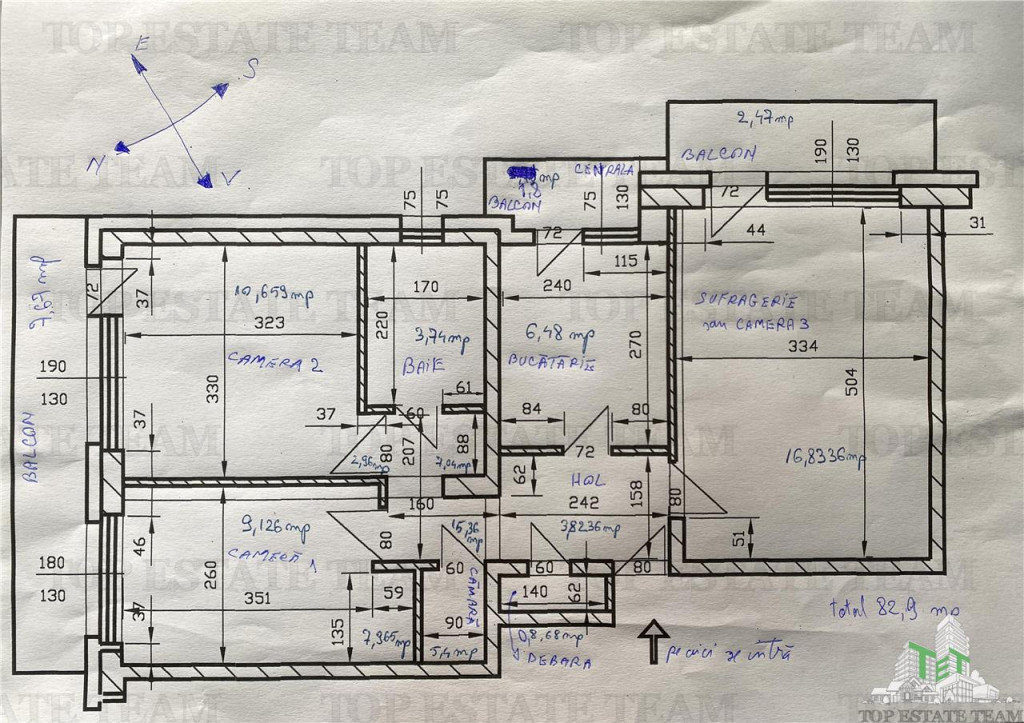 TOP ESTATE TEAM
TOP ESTATE TEAM
E
S
N
V
2,47 mp
BALCON
190
130
CENTRALA
mp
1,2
BALCON
75
130
75
75
72
72
44
31
115
7,67 mp
72
37
10,659 mp
323
CAMERA 2
330
190
130
37
170
220
3,74 mp
BAIE
61
240
6,48 mp
BUCĂTĂRIE
270
84
80
72
SUFRAGERIE
sau CAMERA 3
334
504
16,8336 mp
37
60
80
207
88
2,96 mp
BALCON
62
HOL
242
158
3,8236 mp
80
51
160
15,36 mp
9,126 mp
CAMERA 1
80
180
130
46
260
351
37
59
135
60
CĂMARĂ
90
5,4 mp
60
80
140
62
0,8,68 mp
DEBARA
pe aici se intră
total 82,9 mp
TET
TOP ESTATE TEAM